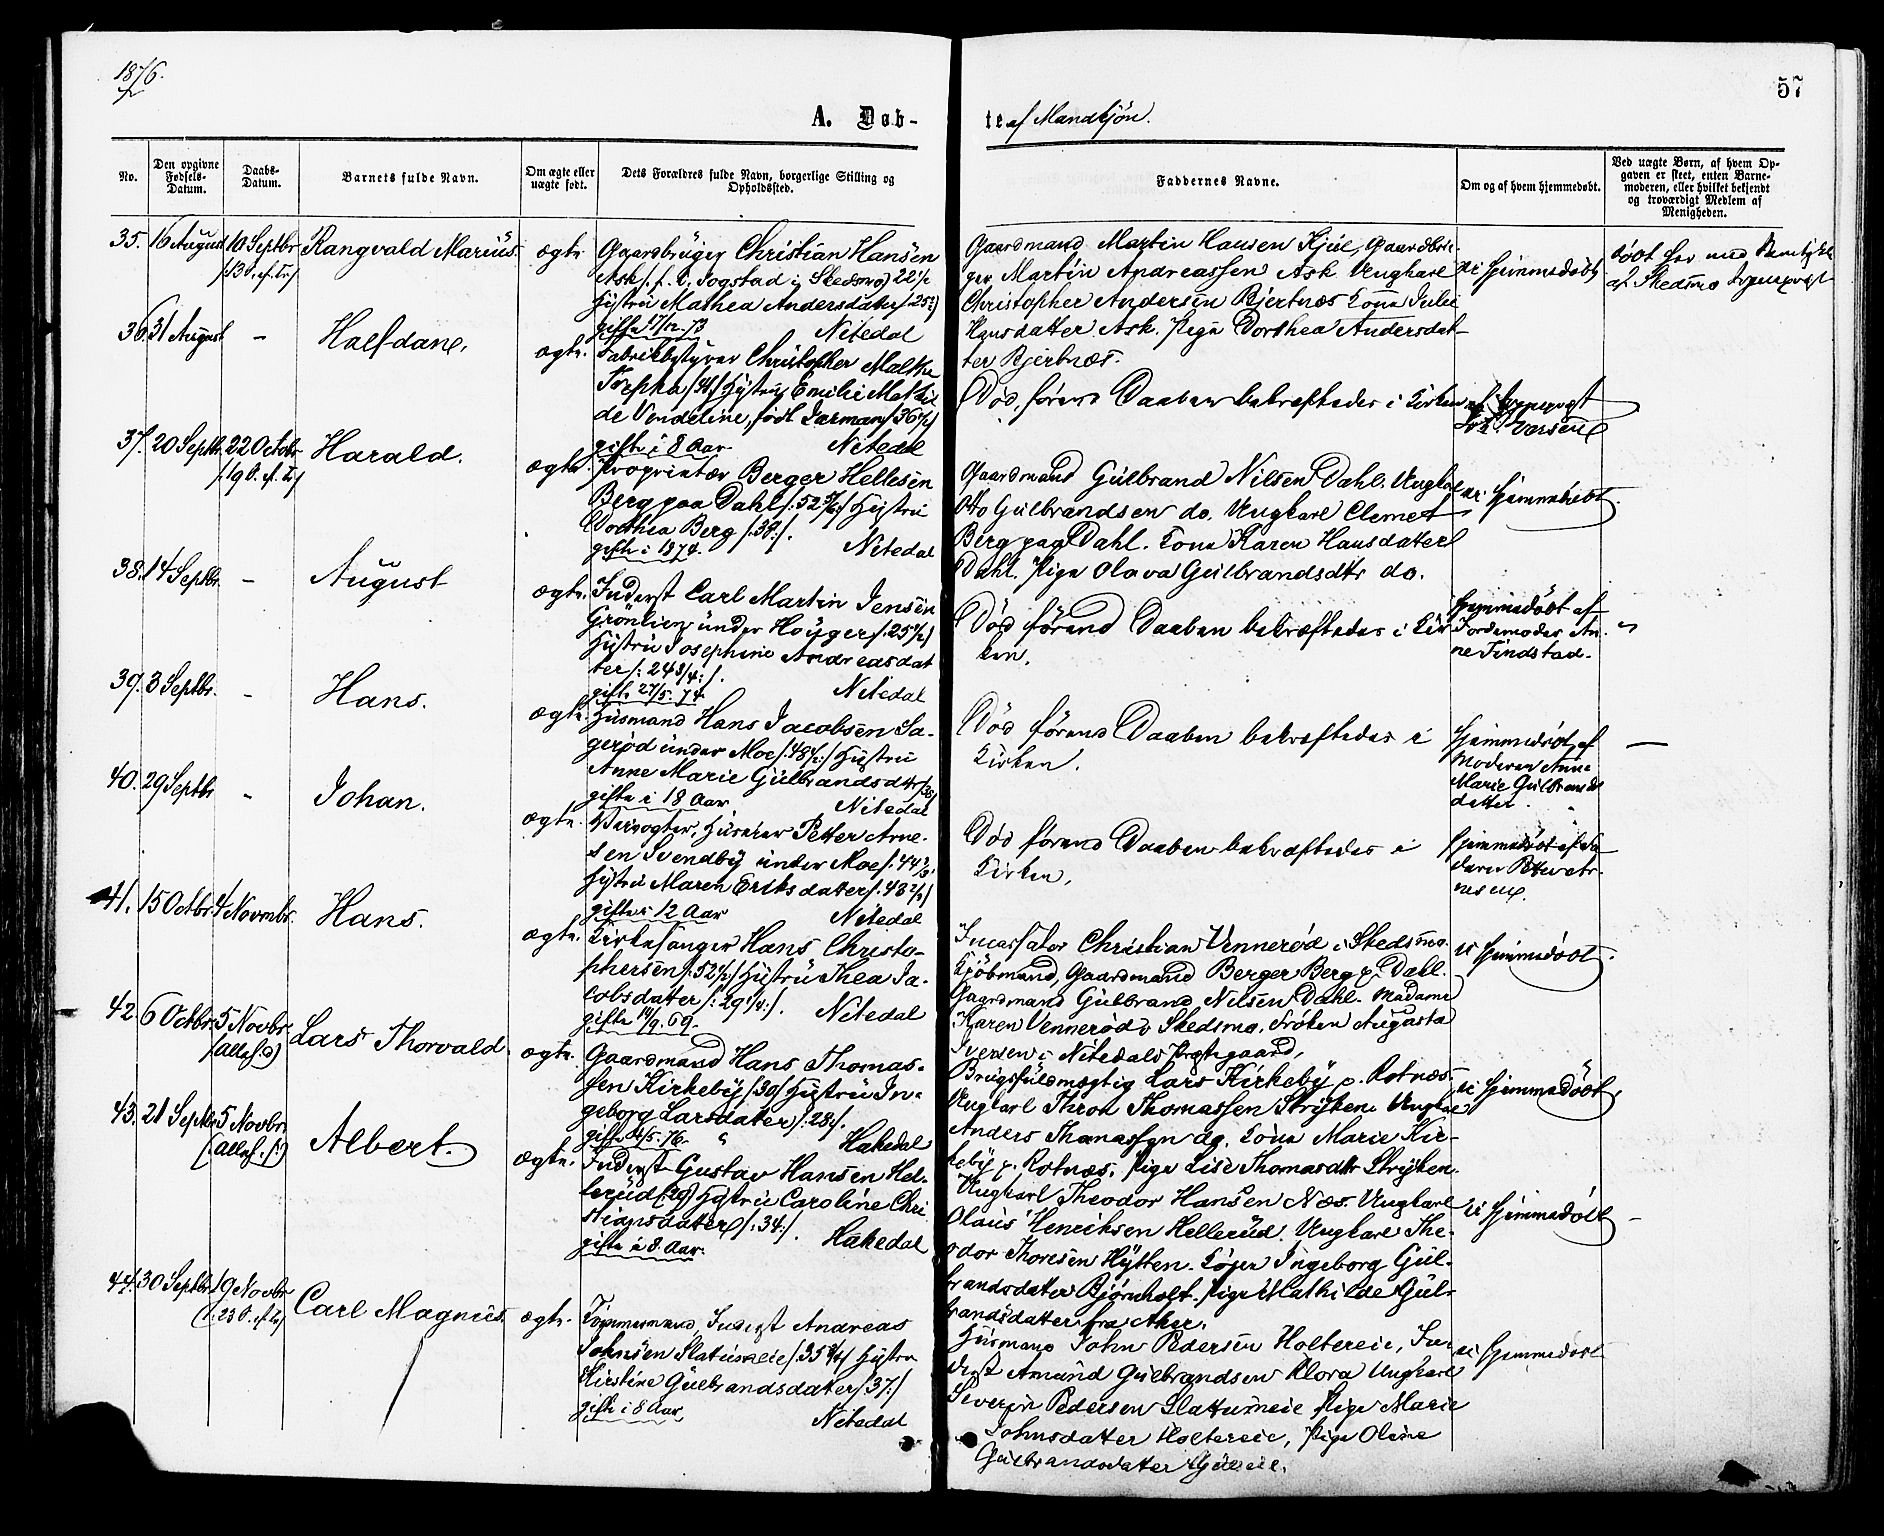 1876.
57
A. Døb-
te af Mandkjön.
No.
Den opgivne Fødsels-Datum.
Daabs-Datum.
Barnets fulde Navn.
Om ægte eller uægte født.
Dets Forældres fulde Navn, borgerlige Stilling og Opholdssted.
Faddernes Navne.
Om og af hvem hjemmedøbt.
Ved uægte Børn, af hvem Opgaven er skeet, enten Barnemoderen, eller hvilket bekjendt og troværdigt Medlem af Menigheden.
35. 16 August 10 Septbr. Rangvald Marius. ægte
Gaardbruger Christian Hansen
Ask
Skedsmo
Hustru Mathea Andersdatter
gifte 17/12. 73 Nitedal
Gaardmand Martin Hansen Kjul, Gaardbru-
ger Martin Andreassen Ask Ungkarl
Christopher Andersen Bjertnæs Kone Julie
Hansdatter Ask. Pige Dorthea Andersdat-
ter Bjertnæs.
ei hjemmedöbt
af Skedsmo Sogneprest
36. 31 August - Halfdan. ægte.
Fabrikbestyrer Christopher
Hustru Emilie Mathil-
de Vendeline, född
gifte i 8 Aar. Nitedal
Död, förend Daaben bekræftedes i Kirken
af Sogneprest
37. 20 Septbr. 22 Octobr. Harald. ægte.
/19 S. ef. Tr/
Proprietær Berger Hellesen
Berg paa Dahl Hustru
Dorthea Berg /:38:/.
gifte i 1874. Nitedal
Gaardmand Gulbrand Nilsen Dahl. Ungkarl
Otto Gulbrandsen do. Ungkarl Clemet
Berg paa Dahl. Kone Karen Hansdatter
Dahl. Pige Olava Gulbrandsdtr do.
ei hjemmedöbt.
38. 14 Septbr. - August ægte.
Inderst Carl Martin Jensen
Grönlien under Houger /:25 1/2/
Hustru Josephine Andreasdat
ter /:24 3/4:/.
gifte 27/5. 74. Nitedal
Död förend Daaben bekræftedes i Kir
ken.
Hjemmedöbt af
Jordemoder An-
ne Tindstad.
39. 3 Septbr. - Hans. ægte.
Husmand Hans Jacobsen Sa-
geröd under Moe Hustru
Anne Marie Gulbrandsdtr
gifte i 18 Aar. Nitedal
Död förend Daaben bekræftedes i
Kirken.
Hjemmedöbt af
Moderen Anne
Marie Gulbrands
datter.
40. 29 Septbr - Johan. ægte.
Petter Arne-
sen Svendby under Moe
Hustru Maren Eriksdatter
gifte i 12 Aar Nitedal
Död förend Daaben bekræftedes i
Kirken.
Hjemmedöbt af Fa-
deren Petter Ar-
nesen.
41. 15 Octbr. 4 Novmbr. Hans. ægte.
Kirkesanger Hans Christo-
phersen /:52 1/2:/ Hustru Thea Ja-
cobsdatter /:29 1/4:/. Nitedal
gifte 19/9. 69.
Christian Venneröd i Skedsmo.
Kjöbmand, Gaardmand Berger Berg p. Dahl.
Gaardmand Gulbrand Nilsen Dahl. Madame
Karen Venneröd i Skedsmo, Fröken Augusta
Iversen i Nitedals Præstegaard.
ei hjemmedöbt.
42. 6 Octbr. 5 Novbr. Lars Thorvald. ægte.
(Allehf. D)
Gaardmand Hans Thomas-
sen Kirkeby /:30/ Hustru In-
geborg Larsdatter /:28:/.
gifte Hakedal
Brugsfuldmægtig Lars Kirkeby p. Rotnæs.
Ungkarl Thron Thomassen Stryken. Ungkarl
Anders Thomassen do. Kone Marie Kir-
keby p. Rotnæs. Pige Lise Thomasdtr Stryken.
ei hjemmedöbt.
43. 21 Septbr. 5 Novbr. Albert. ægte.
Inderst Gustav Hansen Hel-
lerud /:29/ Hustru Caroline Chri
stiansdatter /:34:/.
gifte i 8 Aar. Hakedal
Ungkarl Theodor Hansen Næs. Ungkarl
Olaus Henriksen Hellerud. Ungkarl The-
odor Thoresen Hytten. Ingeborg Gul-
brandsdatter Björnholt. Pige Mathilde Gul-
brandsdatter fra Aker.
ei hjemmedöbt
44. 30 Septbr. 19 Novbr. Carl Magnus. ægte.
(:23 S. ef. Tr/
Tömmermand, Inderst Andreas
Johnsen Slattumeie Hustru
Kirstine Gulbrandsdatter /37:/
gifte i 8 Aar Nitedal
Husmand John Pedersen Holtereie, In-
derst Amund Gulbrandsen Klora Ungkarl
Severin Pedersen Slattumeie Pige Marie
Johnsdatter Holtereie, Pige Oline
Gulbrandsdatter
ei hjemmedöbt